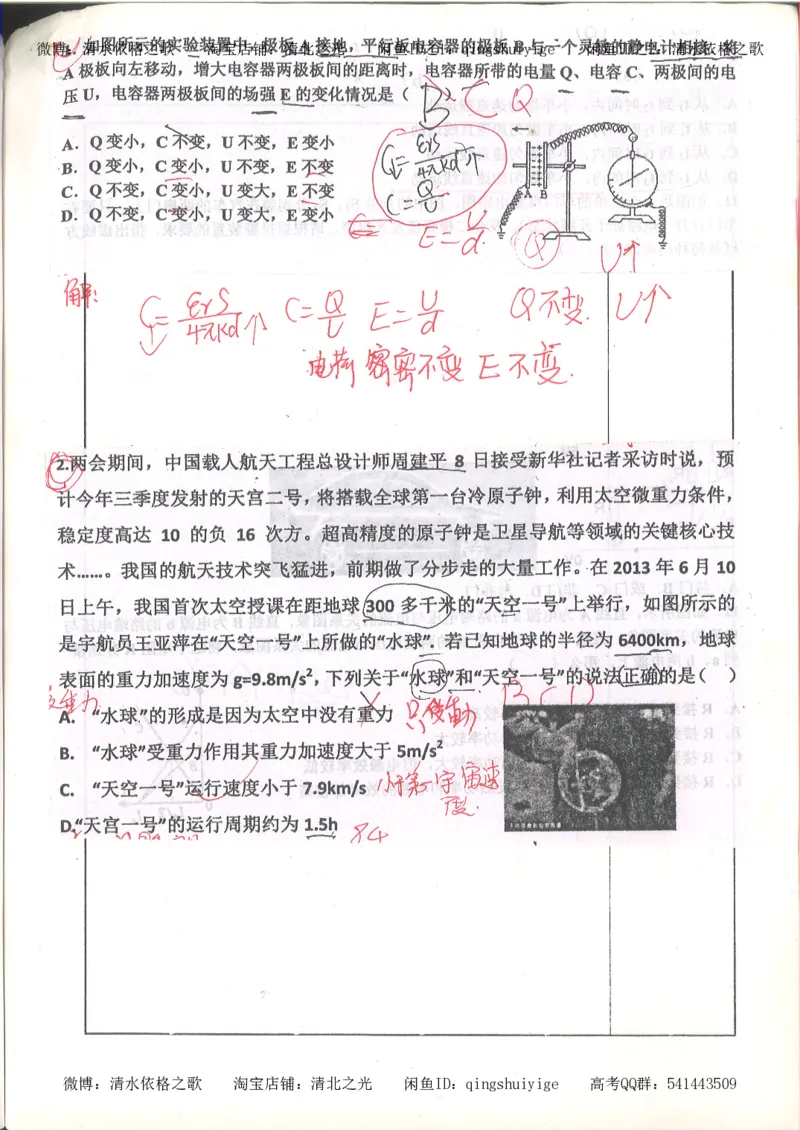 微博：清水依格之歌 淘宝店铺：清北之光 闲鱼ID：qingshuiyige 微博：清水依格之歌
1. 如图所示的实验装置中，极板 A 接地，平行板电容器的极板 B 与一个灵敏的静电计相接。将
A 极板向左移动，增大电容器两极板间的距离时，电容器所带的电量 Q、电容 C、两极间的电
压 U，电容器两极板间的场强 E 的变化情况是（ ）
B C Q
A．Q 变小，C 不变，U 不变，E 变小
B．Q 变小，C 变小，U 不变，E 不变
C．Q 不变，C 变小，U 变大，E 不变
D．Q 不变，C 变小，U 变大，E 变小
C=εrS/4πkd↑
C=Q/U
E=U/d.
A B
Q
U↑
解:
C↓=εrS/4πkd↑ C=Q/U E=U/d Q不变. U↑
电荷密密不变 E不变.
2.两会期间，中国载人航天工程总设计师周建平 8 日接受新华社记者采访时说，预
计今年三季度发射的天宫二号，将搭载全球第一台冷原子钟，利用太空微重力条件，
稳定度高达 10 的负 16 次方。超高精度的原子钟是卫星导航等领域的关键核心技
术……。我国的航天技术突飞猛进，前期做了分步走的大量工作。在 2013 年 6 月 10
日上午，我国首次太空授课在距地球 300 多千米的“天空一号”上举行，如图所示的
是宇航员王亚萍在“天空一号”上所做的“水球”．若已知地球的半径为 6400km，地球
表面的重力加速度为 g=9.8m/s²，下列关于“水球”和“天空一号”的说法正确的是（ ）
B C D
A． “水球”的形成是因为太空中没有重力
B． “水球”受重力作用其重力加速度大于 5m/s²
C． “天空一号”运行速度小于 7.9km/s 小于第一宇宙速
度.
D.“天宫一号”的运行周期约为 1.5h
84
微博：清水依格之歌 淘宝店铺：清北之光 闲鱼ID：qingshuiyige 高考QQ群：541443509